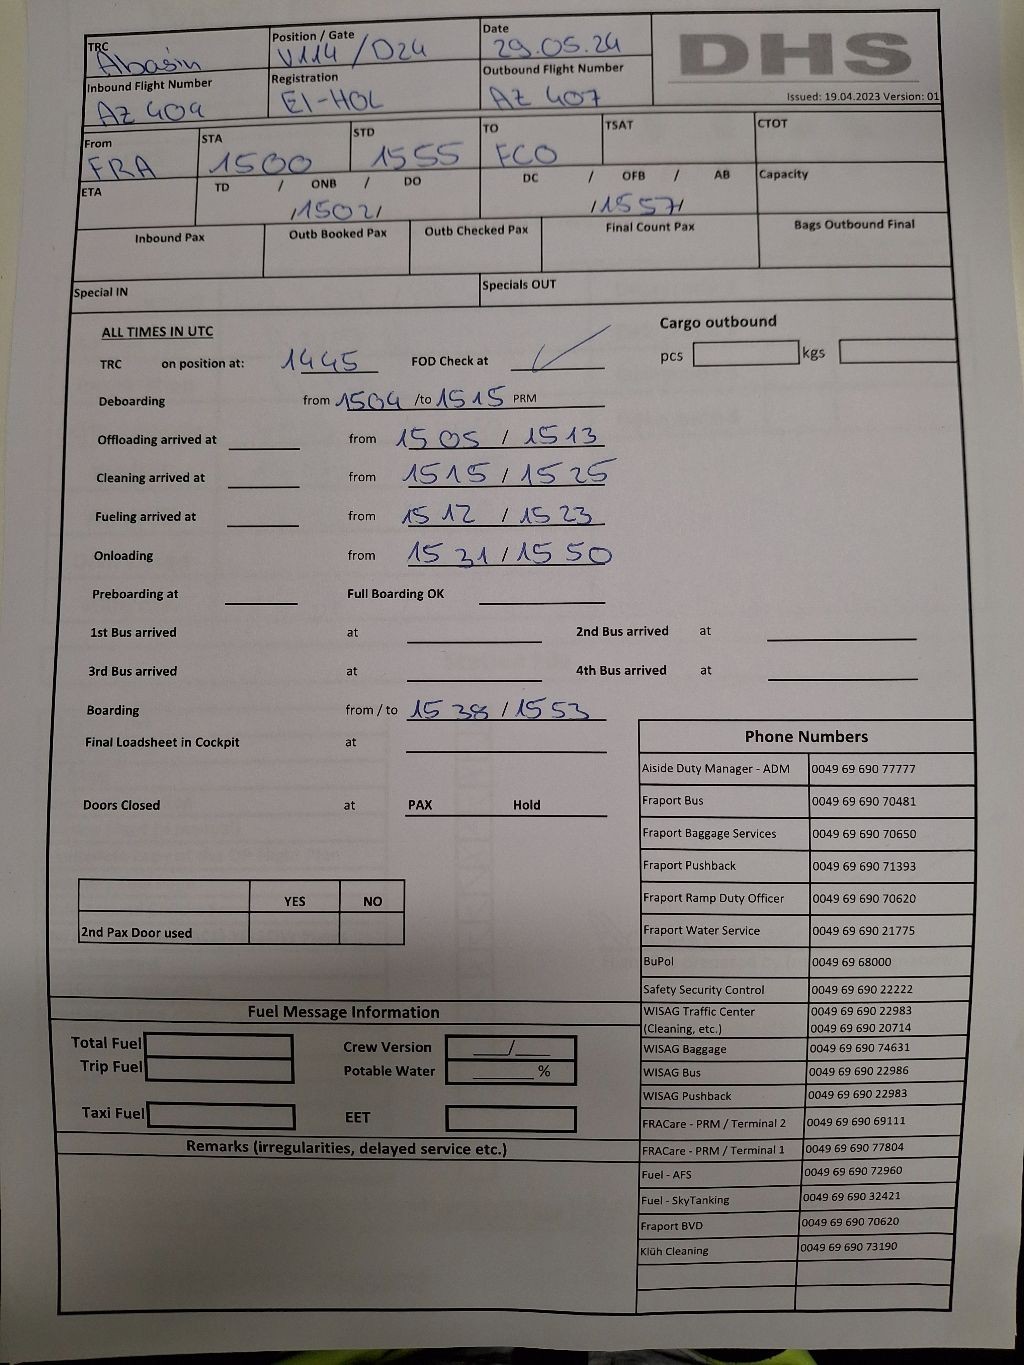 TRC Position / Gate Date DHS
Abasin V114 / D24 29.05.24
Inbound Flight Number Registration Outbound Flight Number
AZ 404 EI-HOL AZ 407 Issued: 19.04.2023 Version: 01
From STA STD TO TSAT CTOT
FRA 1500 1555 FCO
ETA TD / ONB / DO DC / OFB / AB Capacity
/1502/ /1557/
Inbound Pax Outb Booked Pax Outb Checked Pax Final Count Pax Bags Outbound Final
Special IN Specials OUT
ALL TIMES IN UTC Cargo outbound
TRC on position at: 1445 FOD Check at ✓ pcs kgs
Deboarding from 1504 /to 1515 PRM
Offloading arrived at from 1505 / 1513
Cleaning arrived at from 1515 / 1525
Fueling arrived at from 1512 / 1523
Onloading from 1531 / 1550
Preboarding at Full Boarding OK
1st Bus arrived at 2nd Bus arrived at
3rd Bus arrived at 4th Bus arrived at
Boarding from / to 1538 / 1553
Final Loadsheet in Cockpit at
Doors Closed at PAX Hold
YES NO
2nd Pax Door used
Fuel Message Information
Total Fuel Crew Version /
Trip Fuel Potable Water %
Taxi Fuel EET
Remarks (irregularities, delayed service etc.)
Phone Numbers
Aiside Duty Manager - ADM 0049 69 690 77777
Fraport Bus 0049 69 690 70481
Fraport Baggage Services 0049 69 690 70650
Fraport Pushback 0049 69 690 71393
Fraport Ramp Duty Officer 0049 69 690 70620
Fraport Water Service 0049 69 690 21775
BuPol 0049 69 68000
Safety Security Control 0049 69 690 22222
WISAG Traffic Center 0049 69 690 22983
(Cleaning, etc.) 0049 69 690 20714
WISAG Baggage 0049 69 690 74631
WISAG Bus 0049 69 690 22986
WISAG Pushback 0049 69 690 22983
FRACare - PRM / Terminal 2 0049 69 690 69111
FRACare - PRM / Terminal 1 0049 69 690 77804
Fuel - AFS 0049 69 690 72960
Fuel - SkyTanking 0049 69 690 32421
Fraport BVD 0049 69 690 70620
Klüh Cleaning 0049 69 690 73190